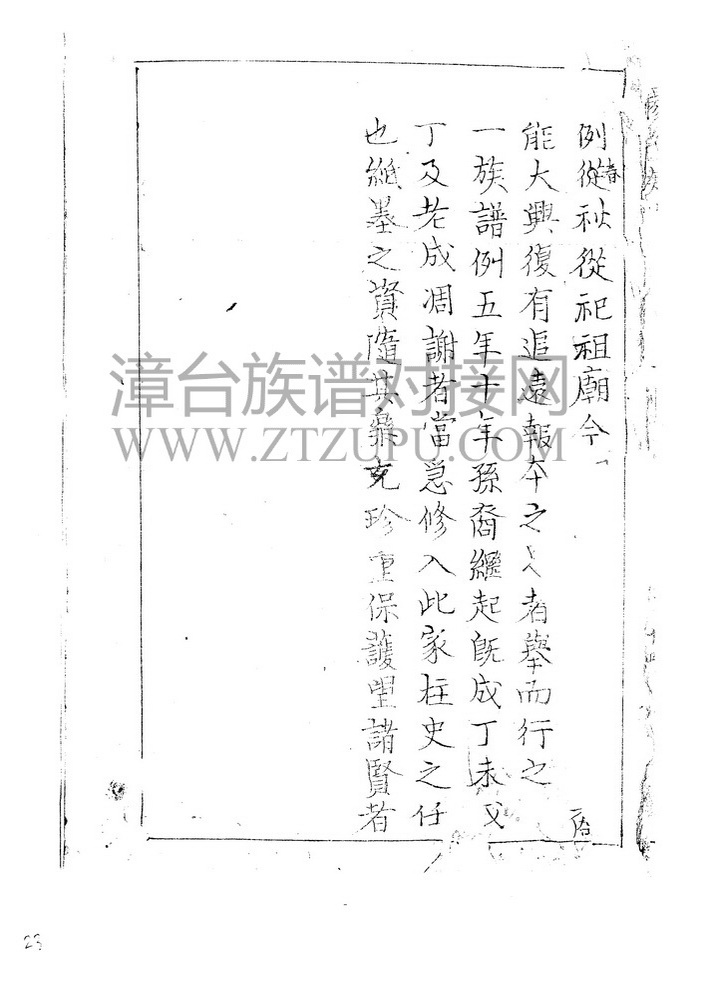 例從春祉從祀祖廟今
能大興復有追遠報本之人者舉而行之
一族譜例五年十年孫裔繼起既成丁未成
丁及老成凋謝者當急修入此家柱史之任
也紙墨之資隨其樂充珍重保護望諸賢者
漳台族谱对接网
WWW.ZTZUPU.COM
23